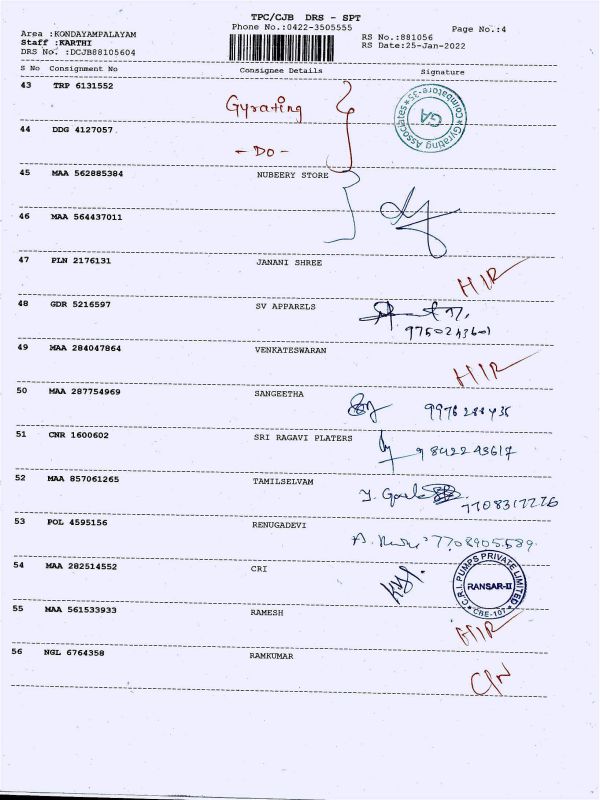 TPC/CJB DRS - SPT
Phone No.:0422-3505555
Page No.:4
Area :KONDAYAMPALAYAM
Staff :KARTHI
DRS No. :DCJB88105604
RS No.:881056
RS Date:25-Jan-2022
S No Consignment No Consignee Details Signature
43 TRP 6131552
Gyrating
Gyrating Associates * Coimbatore-35 *
GA
44 DDG 4127057
- DO -
45 MAA 562885384 NUBEERY STORE
46 MAA 564437011
47 PLN 2176131 JANANI SHREE
HIR
48 GDR 5216597 SV APPARELS
9750243601
49 MAA 284047864 VENKATESWARAN
HIR
50 MAA 287754969 SANGEETHA
51 CNR 1600602 SRI RAGAVI PLATERS
9842243617
52 MAA 857061265 TAMILSELVAM
53 POL 4595156 RENUGADEVI
54 MAA 282514552 CRI
C.R.I. PUMPS PRIVATE LIMITED
RANSAR-II
* CBE-107 *
55 MAA 561533933 RAMESH
HIR
56 NGL 6764358 RAMKUMAR